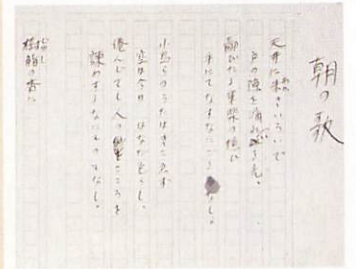 朝の歌
天井に朱きいろいで
戸の隙を洩れ入る光、
鄙びたる軍楽の憶ひ
手にてなすなにごともなし。
小鳥らのうたはきこえず
空は今日はなだ色らし、
倦んじてし人のこころを
諫めするなにものもなし。
樹脂の香に